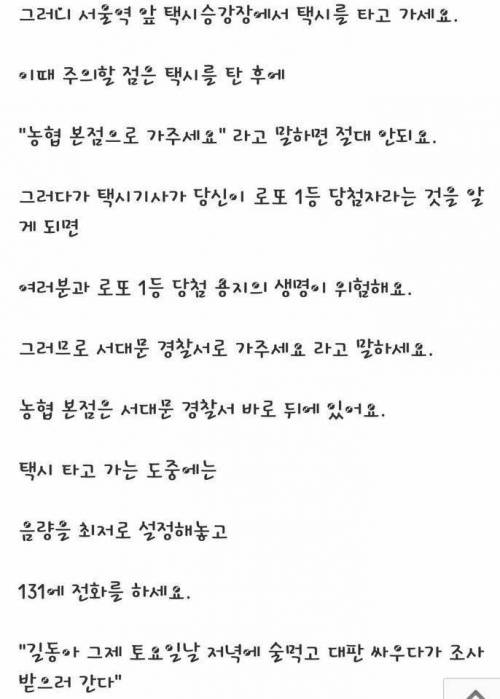 그러니 서울역 앞 택시승강장에서 택시를 타고 가세요.
이때 주의할 점은 택시를 탄 후에
"농협 본점으로 가주세요" 라고 말하면 절대 안되요.
그러다가 택시기사가 당신이 로또 1등 당첨자라는 것을 알
게 되면
여러분과 로또 1등 당첨 용지의 생명이 위험해요.
그러므로 서대문 경찰서로 가주세요 라고 말하세요.
농협 본점은 서대문 경찰서 바로 뒤에 있어요.
택시 타고 가는 도중에는
음량을 최저로 설정해놓고
131에 전화를 하세요.
"길동아 그제 토요일날 저녁에 술먹고 대판 싸우다가 조사
받으러 간다"